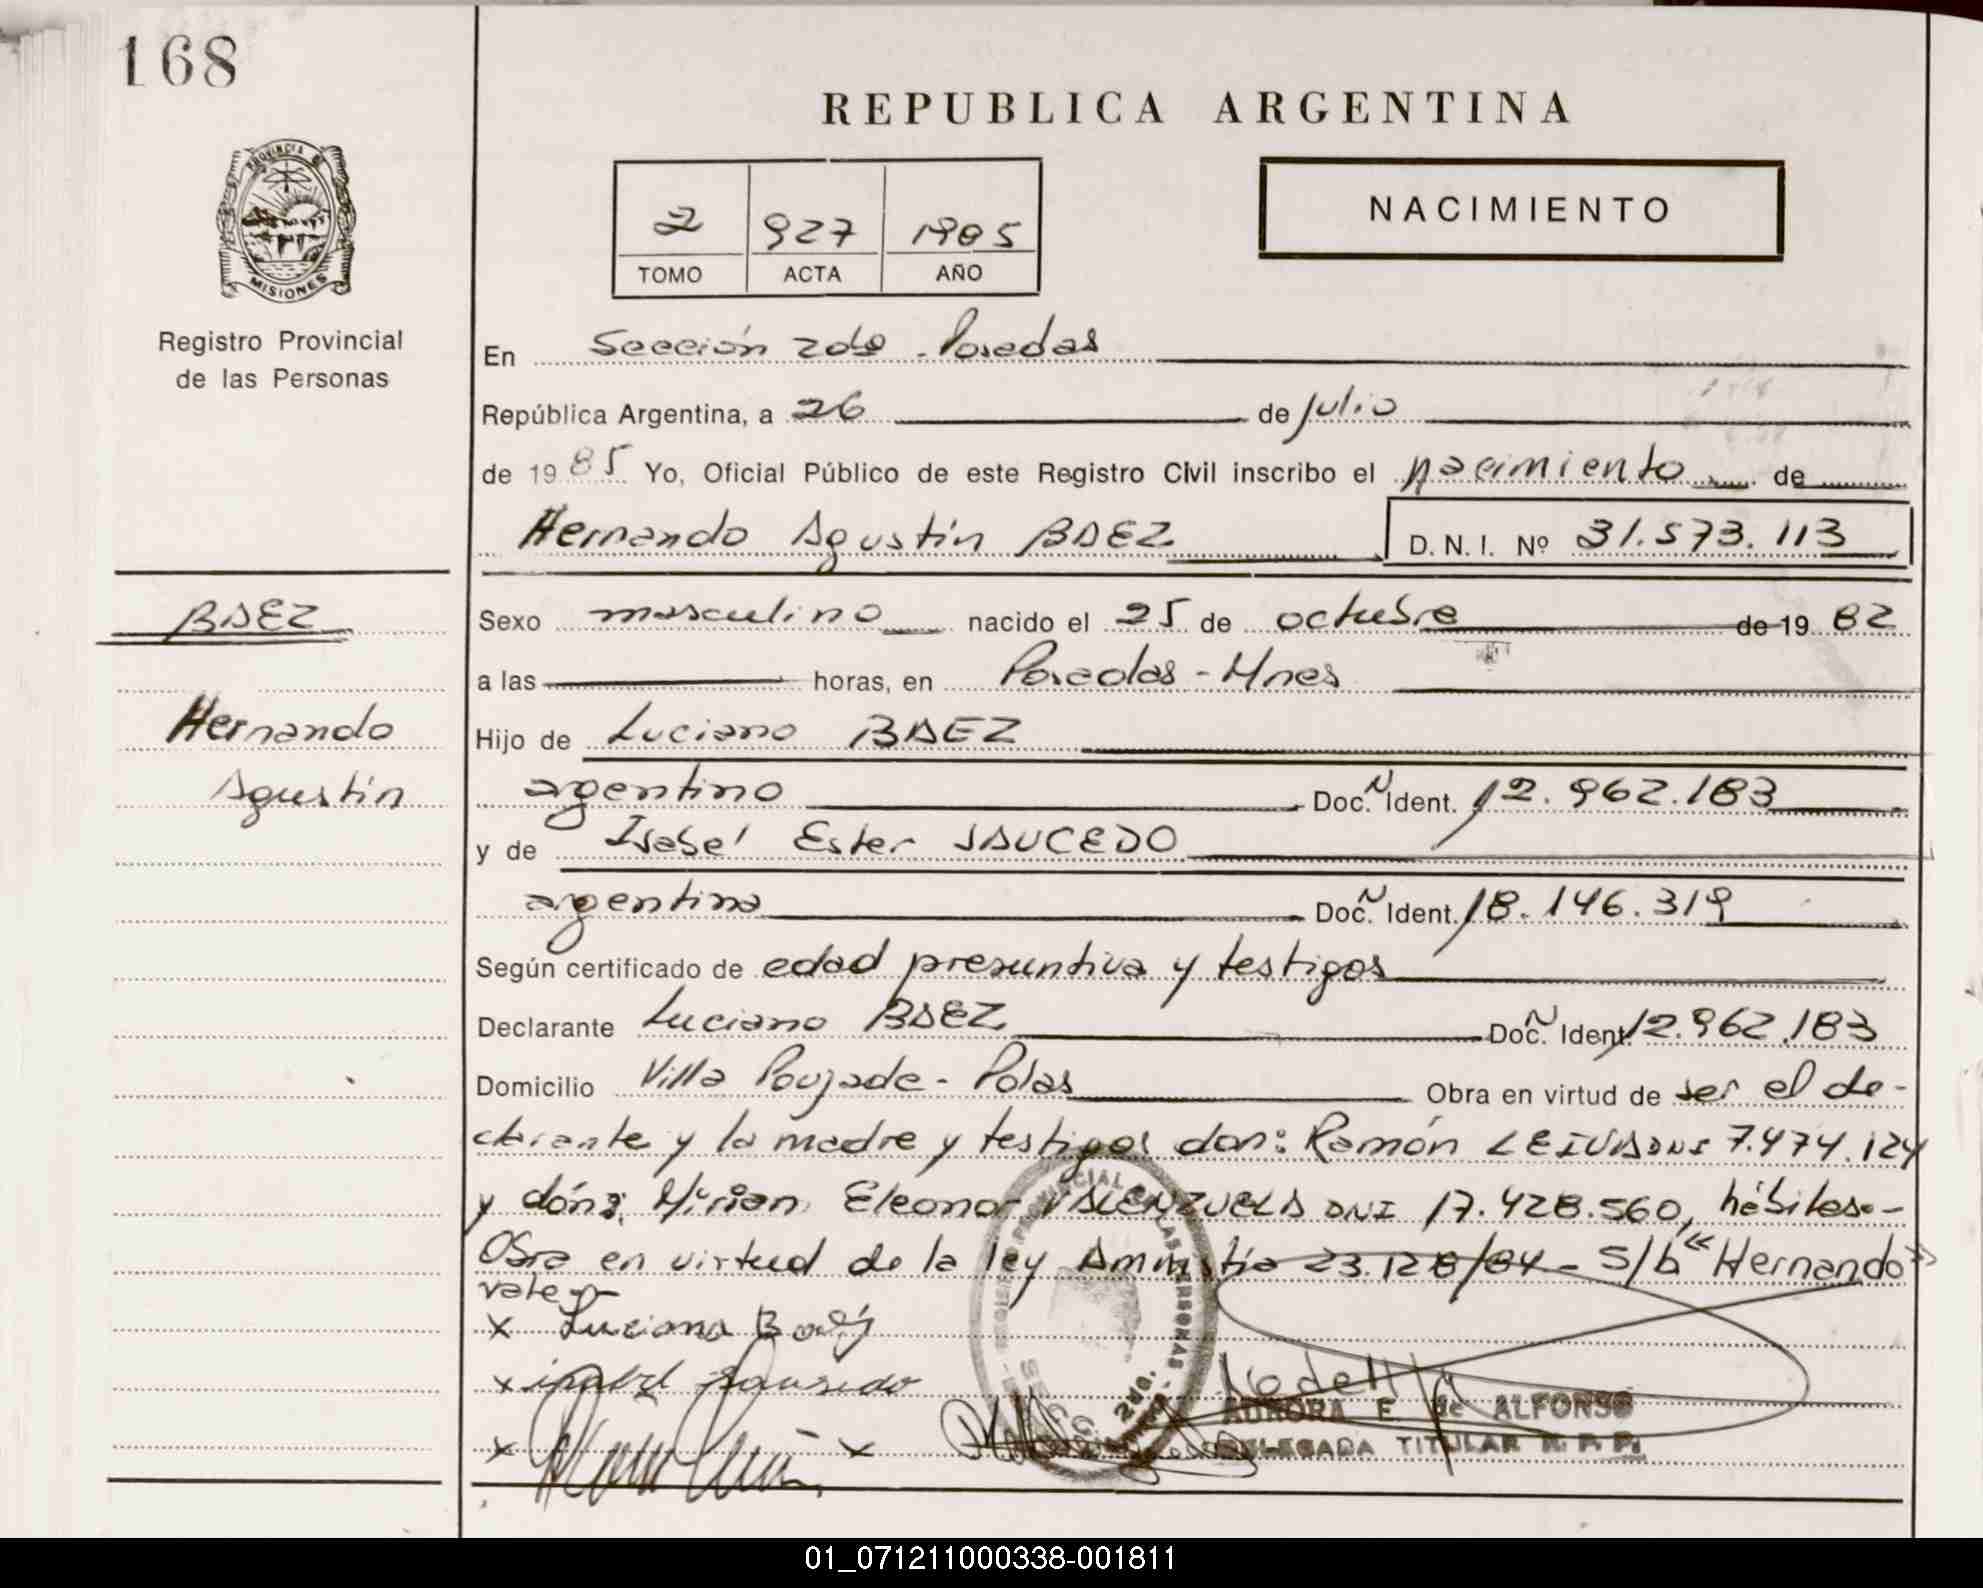 168
REPUBLICA ARGENTINA
PROVINCIA DE
MISIONES
Registro Provincial
de las Personas
2 927 1985
TOMO ACTA AÑO
NACIMIENTO
En Sección 2da - Posadas
República Argentina, a 26 de Julio
de 1985 Yo, Oficial Público de este Registro Civil inscribo el nacimiento de
Hernando Agustín BAEZ D. N. I. Nº 31.573.113
BAEZ
Hernando
Agustín
Sexo masculino nacido el 25 de octubre de 19 82
a las horas, en Posadas - Mnes
Hijo de Luciano BAEZ
argentino Doc. N Ident. 12.962.183
y de Isabel Ester SAUCEDO
argentina Doc. N Ident. 18.146.319
Según certificado de edad presuntiva y testigos
Declarante Luciano BAEZ Doc. N Ident. 12.962.183
Domicilio Villa Poujade - Pdas Obra en virtud de ser el de-
clarante y la madre y testigos don: Ramón LEIVA DNI 7.474.124
y dóña: Mirian Eleonor VALENZUELA DNI 17.428.560, hábiles.-
Obra en virtud de la ley Amnistía 23.128/84 - S/b "Hernando"
vale
x Luciano Baez
x isabel Saucedo
x x
AURORA E de ALFONSO
DELEGADA TITULAR R. P. P.
01_071211000338-001811